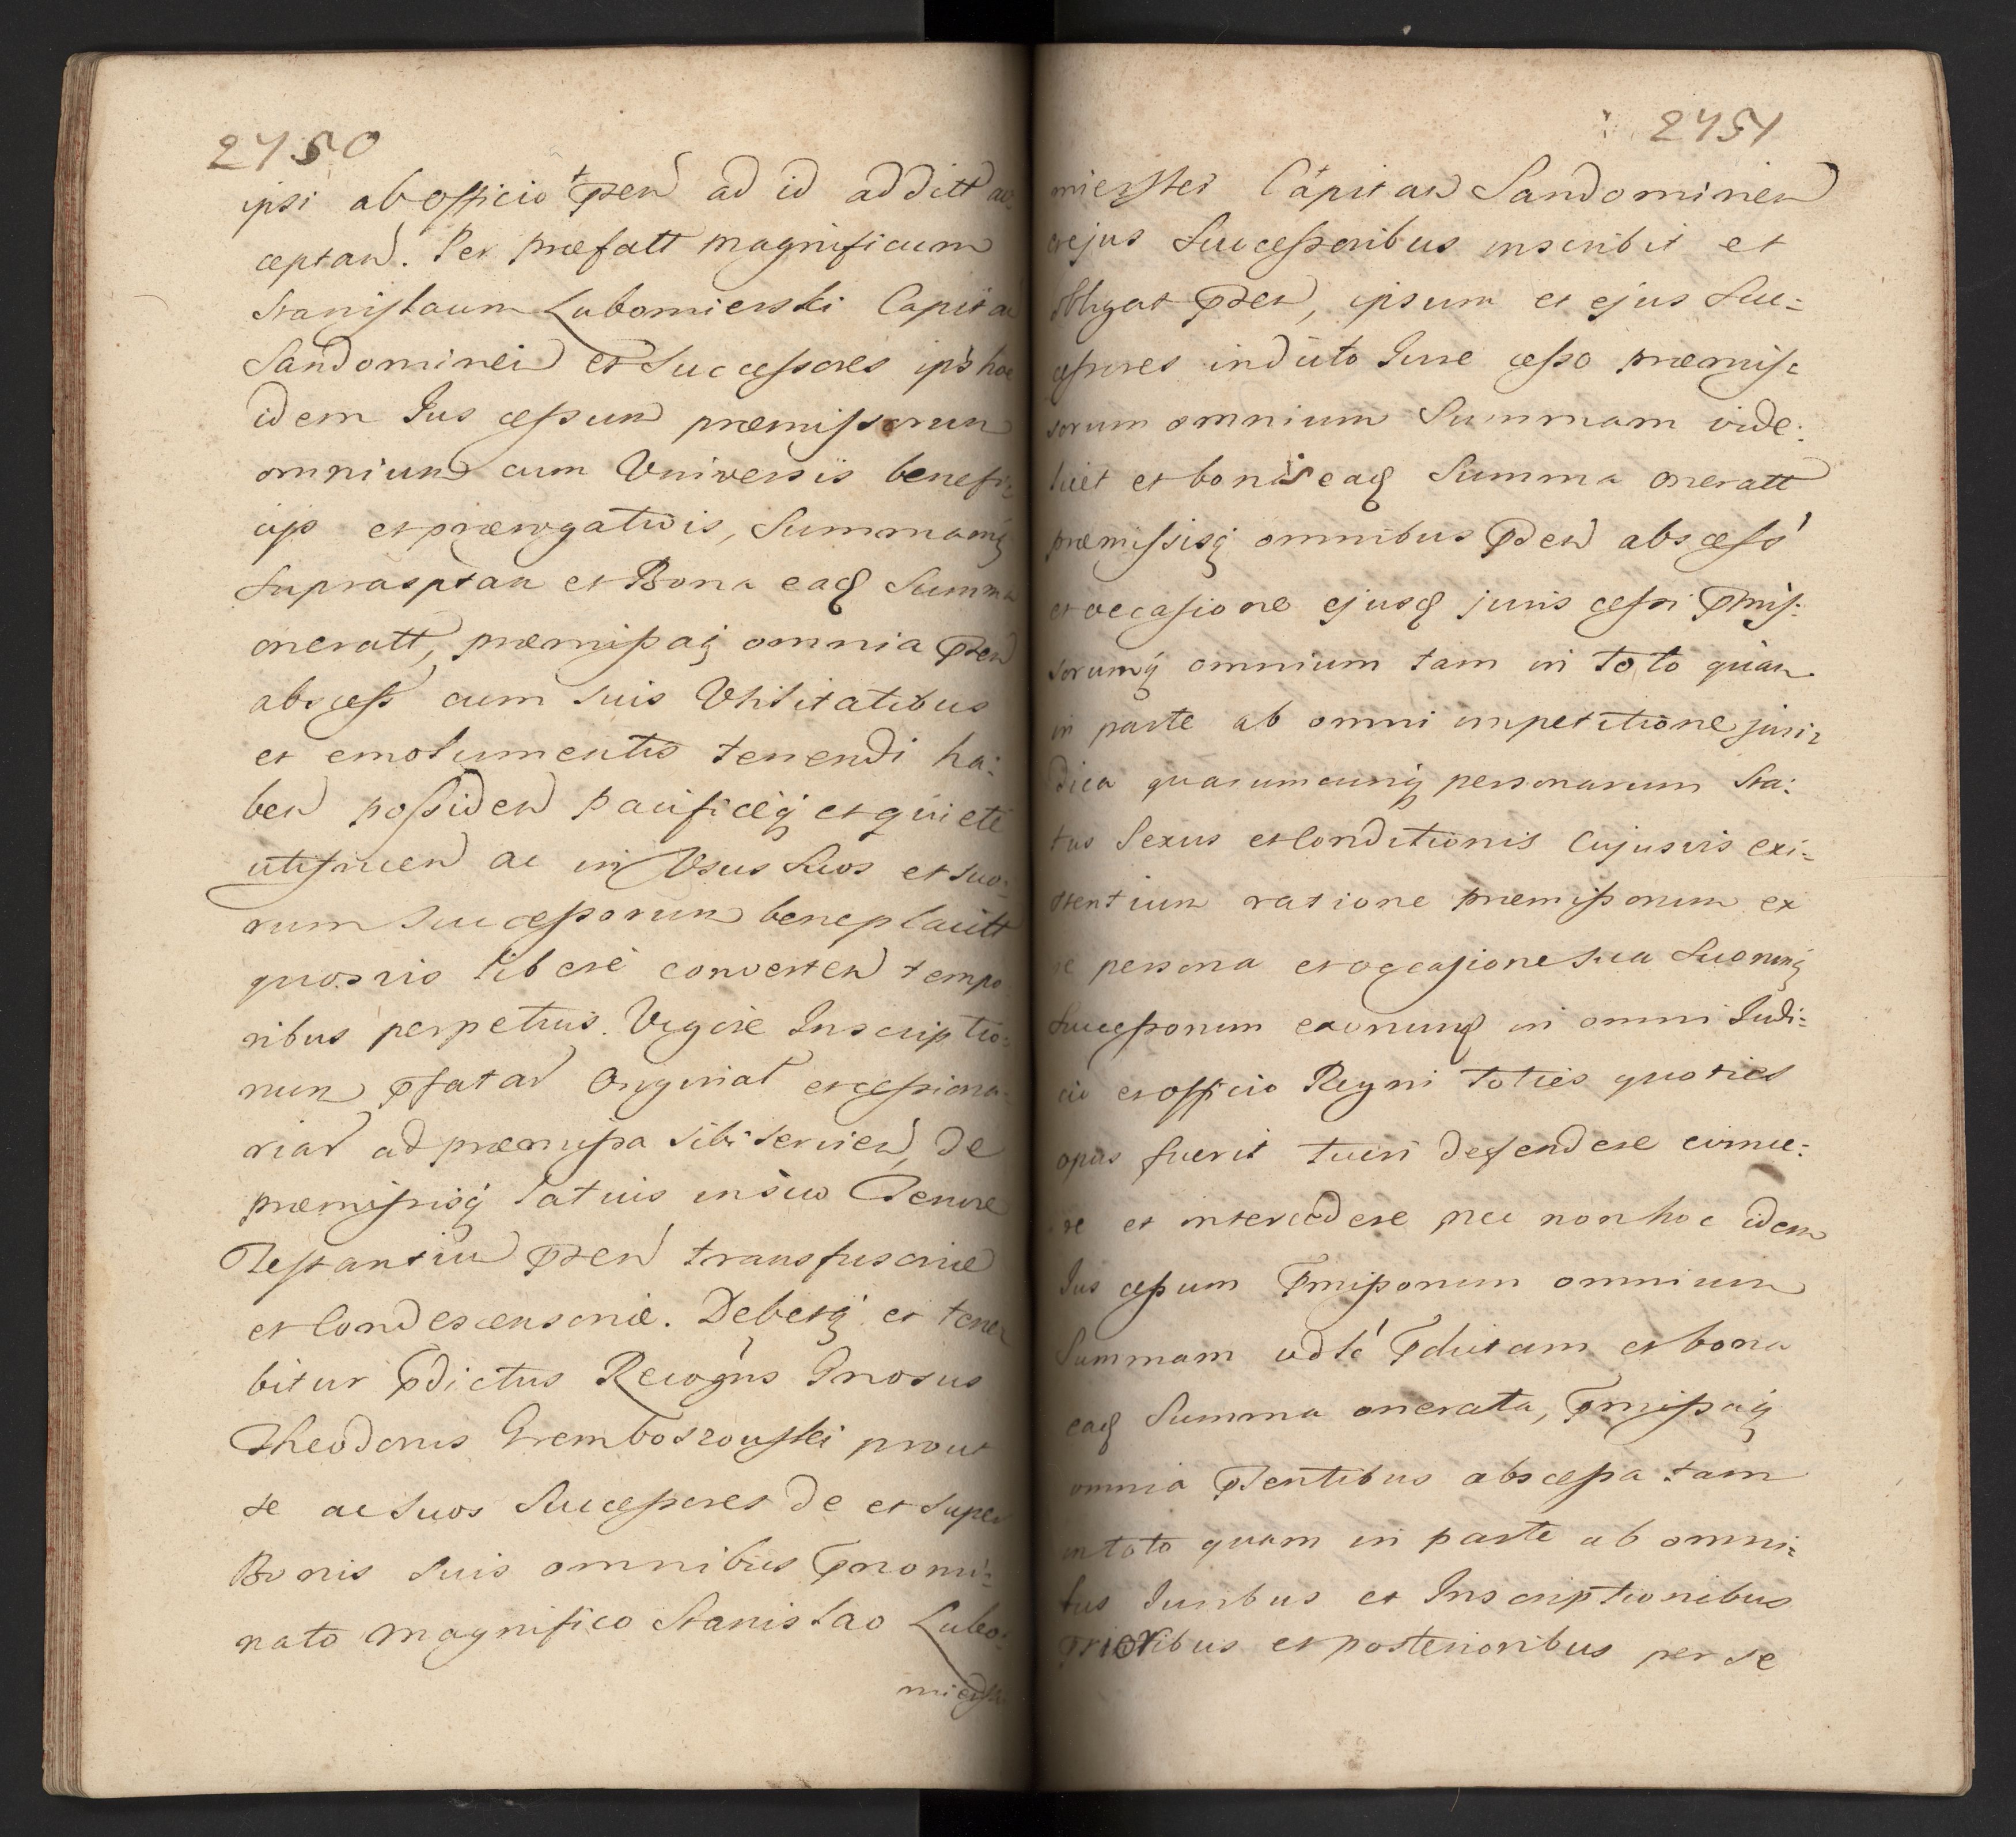 2450
ipsi ab officio pten ad id additt ac:
ceptan. Per præfatt magnificum
Stanislaum Lubomierski Capitan
Sandominen et Successores ips hoc
idem Jus cessum præmissorum
omnium cum Vniversis benefi:
cijs et prærogativis, Summamq
suprasptan et Bona eadq Summa
oneratt, præmissaq omnia pten
abscess cum suis Vtilitatibus
et emolumentis tenendi ha:
ben possiden pacificèq et quietè
utifruen ac in Vsus suos et suo:
rum successorum beneplacitt
quosvis liberè converten tempo
ribus perpetuis. Vigore Inscriptio:
num pfatar Original et cessiona:
riar ad præmissa sibi servien, de
præmissisq latius in suo Tenore
Testantiu pten transfusorie
et Condescensorie. Debetq et tene:
bitur pdictus Recogns Gnosus
Theodorus Gremboszowski prout
se ac suos Successores de et super
Bonis suis omnibus pnomi:
nato Magnifico Stanislao Lubo:
miersk
2451
mierskei Capitan Sandominien
et ejus Successoribus inscribit et
obligat pten, ipsum et ejus Suc:
cessores in dicto Jure cesso præmis:
sorum omnium Summam vide:
licet et bonis eadq Summa oneratt
præmissisq omnibus pten abscess
et occasione ejusdq juris cessi pmis:
sorumq omnium tam in toto quam
in parte ab omni impetitione juri:
dica quarumcunq personarum sta:
tus Sexus et Conditionis Cujusvis exi:
stentium ratione præmissorum ex
se persona et occasione sua Suorumq
Successorum eorumdq in omni Judi:
cio et officio Regni toties quoties
opus fuerit tueri defendere evince:
re et intercedere nec non hoc idem
Jus cessum pmissorum omnium
Summam vdlt pdictam et bona
eadq Summa onerata, pmissaq
omnia ptentibus abscessa tam
in toto quam in parte ab omni:
bus Juribus et Inscriptionibus
prioribus et posterioribus per se